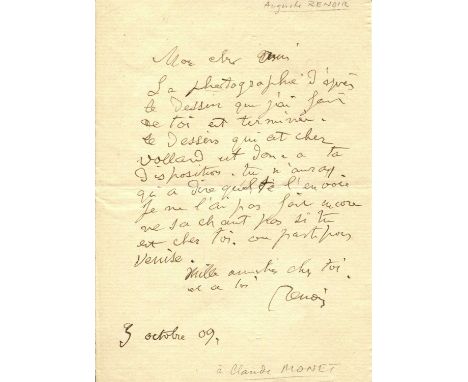 Auguste RENOIR
Mon cher ami
La photographie d'après
le dessin que j'ai fait
de toi est terminée.
le dessin qui est chez
Vollard est donc a ta
disposition. tu n'auras
qu'a dire qu'el te l'envoie
Je ne l'ai pas fait encore
ne sachant pas si tu
est chez toi. ou parti pour
Venise.
Mille amitiés chez toi.
et a toi
Renoir
3 octobre 09.
à Claude MONET